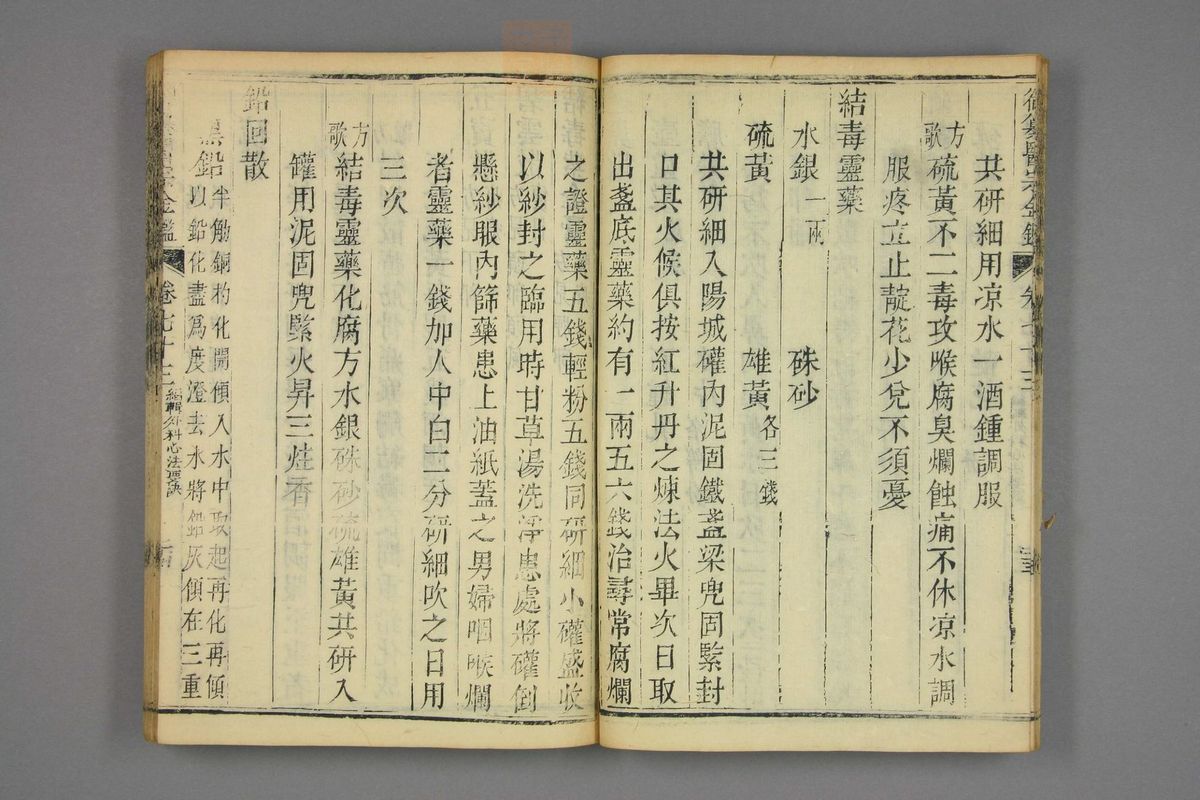 御纂醫宗金鑑
共研細用凉水一酒鍾調服
方歌
硫黃不二毒攻喉腐臭爛蝕痛不休凉水調
服疼立止靛花少兌不須憂
結毒靈藥
水銀一兩 硃砂
硫黃 雄黃各三錢
共研細入陽城礶內泥固鐵盞梁兜固緊封
口其火候俱按紅升丹之煉法火畢次日取
出盞底靈藥約有一兩五六錢治尋常腐爛
之證靈藥五錢輕粉五錢同研細小礶盛收
以紗封之臨用時甘草湯洗淨患處將礶倒
懸紗眼內篩藥患上油紙蓋之男婦咽喉爛
者靈藥一錢加人中白二分研細吹之日用
三次
方歌
結毒靈藥化腐方水銀硃砂硫雄黃共研入
罐用泥固兜緊火昇三炷香
鉛回散
黑鉛
半觔銅杓化開傾入水中取起再化再傾
以鉛化盡爲度澄去水將鉛灰傾在三重
卷七十三
編輯外科心法要訣